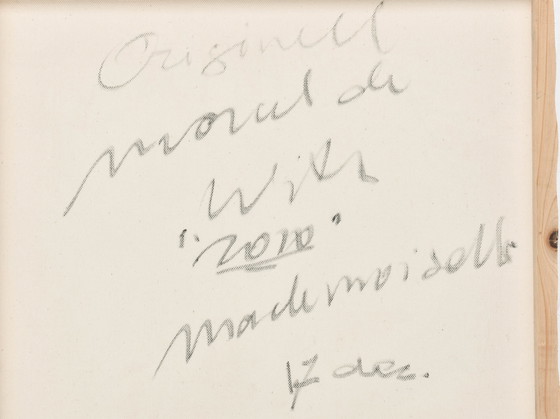 Originell
morul de
With
"zozo"
mademoiselle
17 dec.